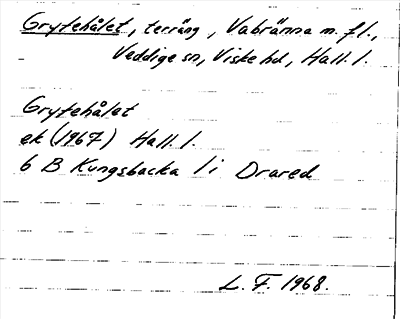 Grytehålet, terräng, Vabränna m. fl.,
Veddige sn, Viske hd, Hall. l.
Grytehålet
ek (1967) Hall. l.
6 B Kungsbacka 1 i Drared
L. F. 1968.